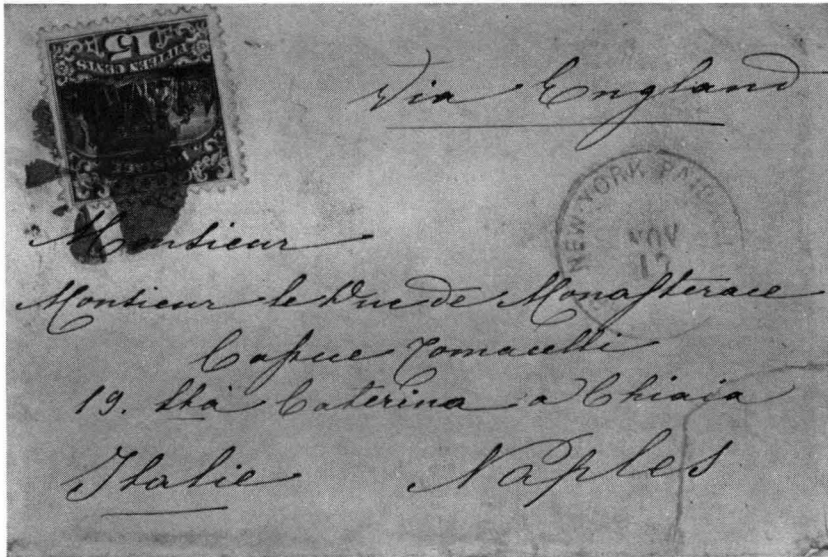 15
FIFTEEN CENTS
Via England
NEW-YORK PAID
NOV
12
Monsieur
Monsieur le Duc de Monasterace
Capece Tomacelli
19. Sta Caterina a Chiaia
Italie Naples